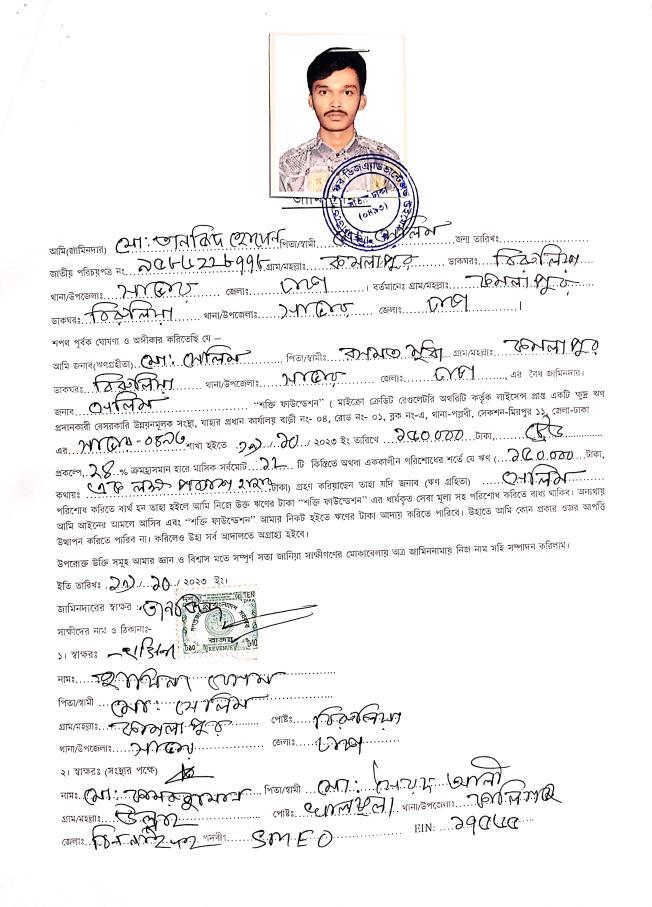 আমি(জামিনদার) মো: তানবিদ হোসেন পিতা/স্বামী সেলিম জন্ম তারিখঃ
জাতীয় পরিচয়পত্র নং গ্রাম/মহল্লাঃ কমলাপুর ডাকঘরঃ বিরুলিয়া
থানা/উপজেলাঃ সাভার জেলাঃ ঢাকা । বর্তমানেঃ গ্রাম/মহল্লাঃ কমলাপুর
ডাকঘরঃ বিরুলিয়া থানা/উপজেলাঃ সাভার জেলাঃ ঢাকা ।
শপথ পূর্বক ঘোষণা ও অঙ্গীকার করিতেছি যে –
আমি জনাব(ঋণগ্রহীতা) মো: সেলিম পিতা/স্বামীঃ গ্রাম/মহল্লাঃ কমলাপুর
ডাকঘরঃ বিরুলিয়া থানা/উপজেলাঃ সাভার জেলাঃ ঢাকা, এর বৈধ জামিনদার।
জনাব সেলিম "শক্তি ফাউন্ডেশন" ( মাইক্রো ক্রেডিট রেগুলেটরি অথরিটি কর্তৃক লাইসেন্স প্রাপ্ত একটি ক্ষুদ্র ঋণ
প্রদানকারী বেসরকারি উন্নয়নমূলক সংস্থা, যাহার প্রধান কার্যালয় বাড়ী নং- ০৪, রোড নং- ০১, ব্লক নং-এ, থানা-পল্লবী, সেকশন-মিরপুর ১১, জেলা-ঢাকা
এর সাভার-০৪৯৩ শাখা হইতে ১০/ ২০২৩ ইং তারিখে ১৫০,০০০ টাকা,
প্রকল্পে, ২৪ % ক্রমহ্রাসমান হারে মাসিক সর্বমোট ১২ টি কিস্তিতে অথবা এককালীন পরিশোধের শর্তে যে ঋণ ( ১৫০,০০০ টাকা,
কথায়ঃ এক লক্ষ পঞ্চাশ হাজার টাকা) গ্রহণ করিয়াছেন তাহা যদি জনাব (ঋণ গ্রহিতা) সেলিম
পরিশোধ করিতে ব্যর্থ হন তাহা হইলে আমি নিজে উক্ত ঋণের টাকা "শক্তি ফাউন্ডেশন" এর ধার্যকৃত সেবা মূল্য সহ পরিশোধ করিতে বাধ্য থাকিব। অন্যথায়
আমি আইনের আমলে আসিব এবং "শক্তি ফাউন্ডেশন" আমার নিকট হইতে ঋণের টাকা আদায় করিতে পারিবে। উহাতে আমি কোন প্রকার ওজর আপত্তি
উত্থাপন করিতে পারিব না। করিলেও উহা সর্ব আদালতে অগ্রাহ্য হইবে।
উপরোক্ত উক্তি সমূহ আমার জ্ঞান ও বিশ্বাস মতে সম্পূর্ণ সত্য জানিয়া সাক্ষীগণের মোকাবেলায় অত্র জামিননামায় নিজ নাম সহি সম্পাদন করিলাম।
ইতি তারিখঃ ১০/ ২০২৩ ইং।
জামিনদারের স্বাক্ষরঃ
সাক্ষীদের নাম ও ঠিকানাঃ-
১। স্বাক্ষরঃ
নামঃ
পিতা/স্বামী মো: সেলিম
গ্রাম/মহল্লাঃ কমলাপুর পোষ্টঃ বিরুলিয়া
থানা/উপজেলাঃ সাভার জেলাঃ ঢাকা
২। স্বাক্ষরঃ (সংস্থার পক্ষে)
নামঃ মো: পিতা/স্বামী মো: সৈয়দ আলী
গ্রাম/মহল্লাঃ পোষ্টঃ থানা/উপজেলাঃ
জেলাঃ পদবীঃ SMEO EIN: ১৭৫৫৫